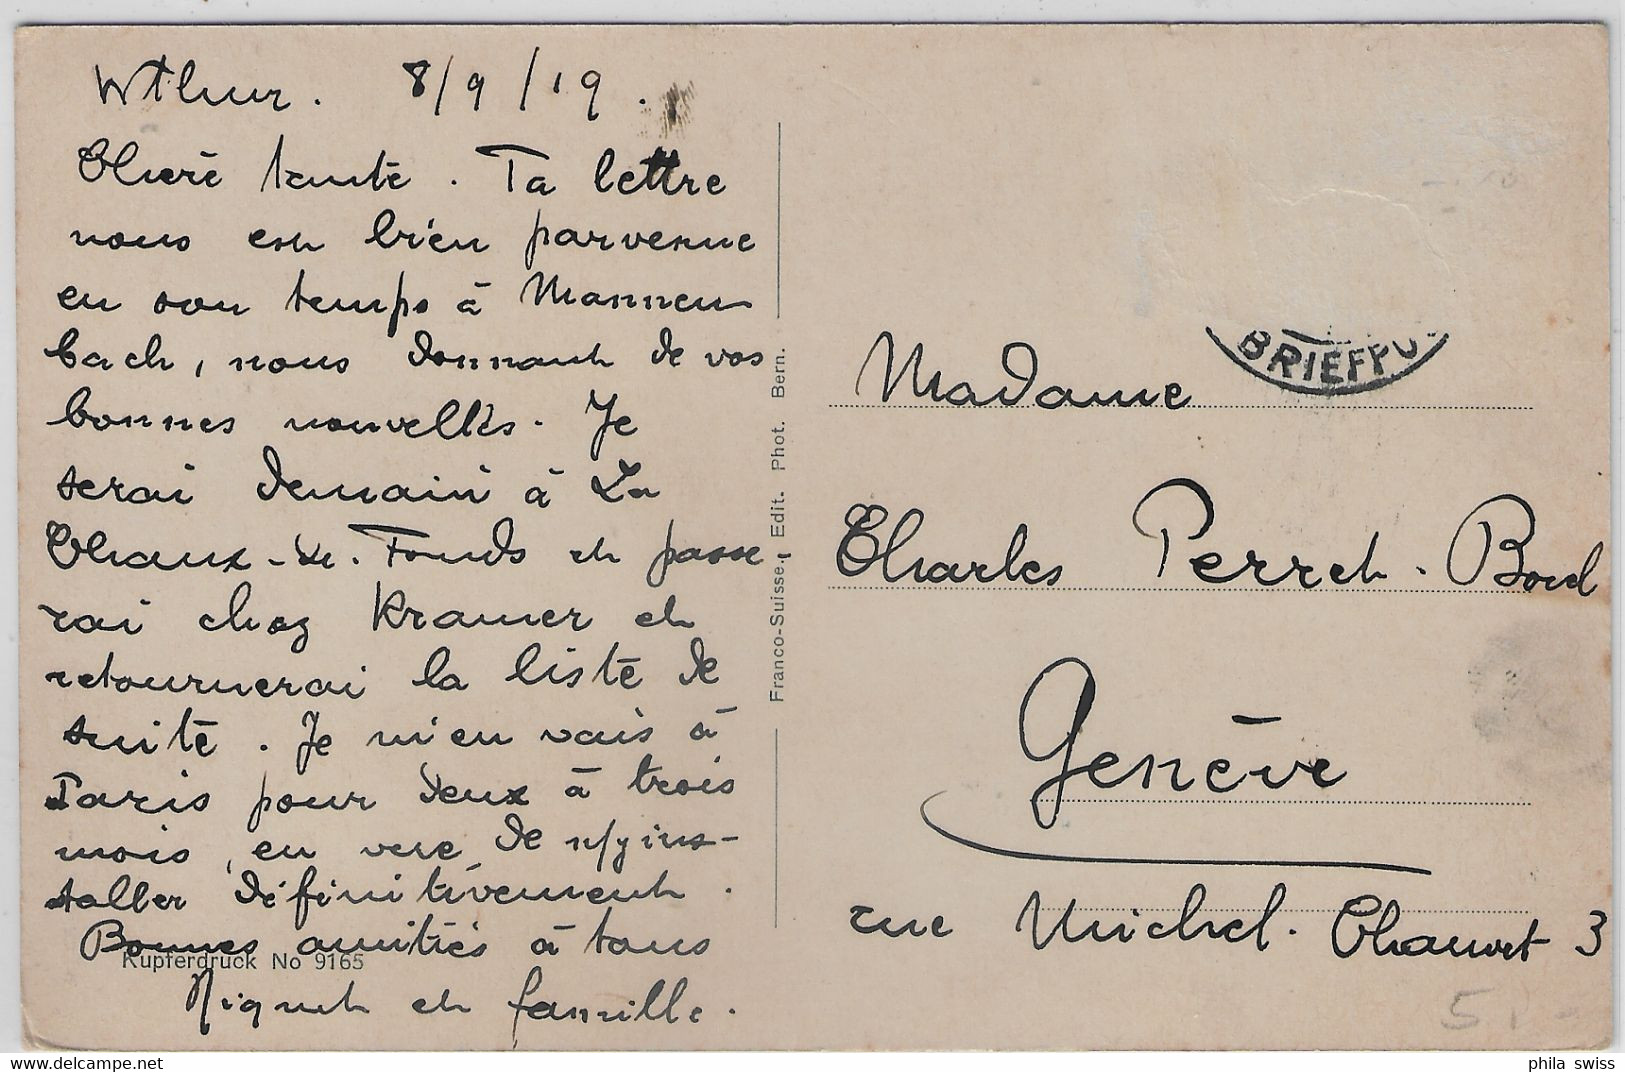 Wthur. 8/9/19.
Chère tante. Ta lettre
nous est bien parvenue
en son temps à Mannen
bach, nous donnant de vos
bonnes nouvelles. Je
serai demain à La
Chaux-de-Fonds et passe-
rai chez Kramer et
retournerai la liste de
suite. Je m'en vais à
Paris pour deux à trois
mois, en vue de m'y ins-
staller définitivement.
Bonnes amitiés à tous
et famille.
Kupferdruck No 9165
Franco-Suisse, Edit. Phot. Bern.
BRIEFPO
Madame
Charles Perret-Bord
Genève
rue Michel-Chauvet 3
5.-
delcampe.net
phila_swiss